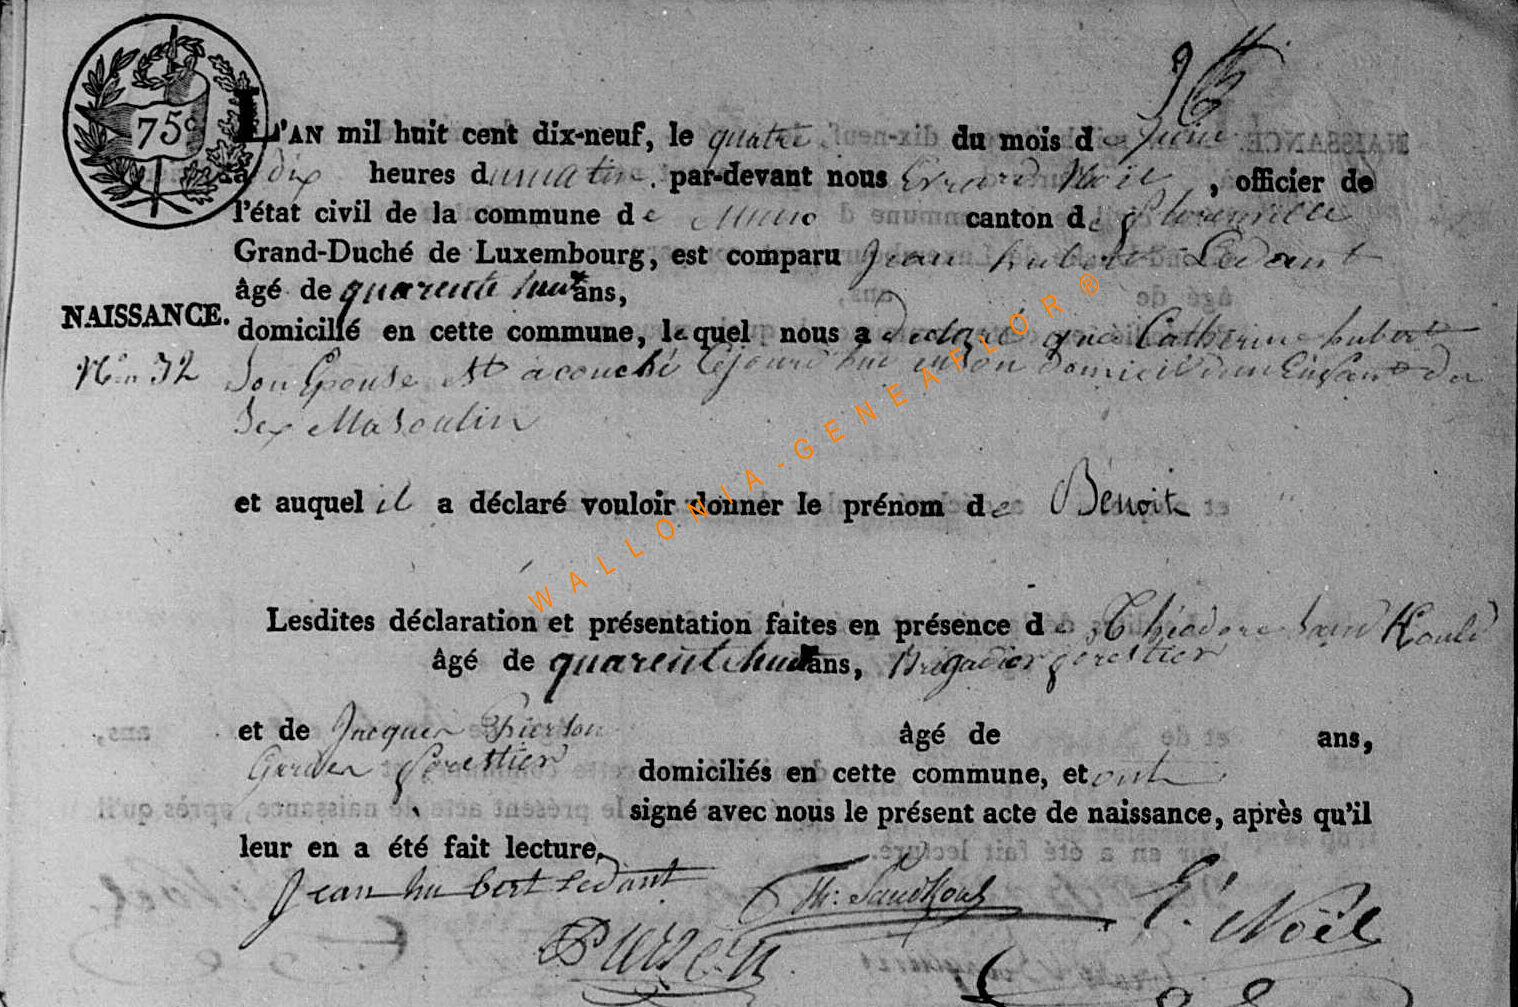 75c
L'AN mil huit cent dix-neuf, le quatre du mois de Juin
à dix heures du matin. par-devant nous Errard Noël, officier de
l'état civil de la commune de Muno canton de Florenville
Grand-Duché de Luxembourg, est comparu Jean hubert Ledant
âgé de quarente huit ans,
NAISSANCE.
domicilié en cette commune, lequel nous a declaré que Catherine hubert
N.o 32
Son Epouse est acouché cejourd'hui en son domicil d'un Enfant du
Sex Masculin
et auquel il a déclaré vouloir donner le prénom de Bénoit
Lesdites déclaration et présentation faites en présence de Théodore
âgé de quarente huit ans, Brigadier forestier
et de Jacques Pierson âgé de ans,
Garde forestier domiciliés en cette commune, et ont
signé avec nous le présent acte de naissance, après qu'il
leur en a été fait lecture.
Jean hubert Ledant
Th: E. Noël
WALLONIA-GENEAFLOR®